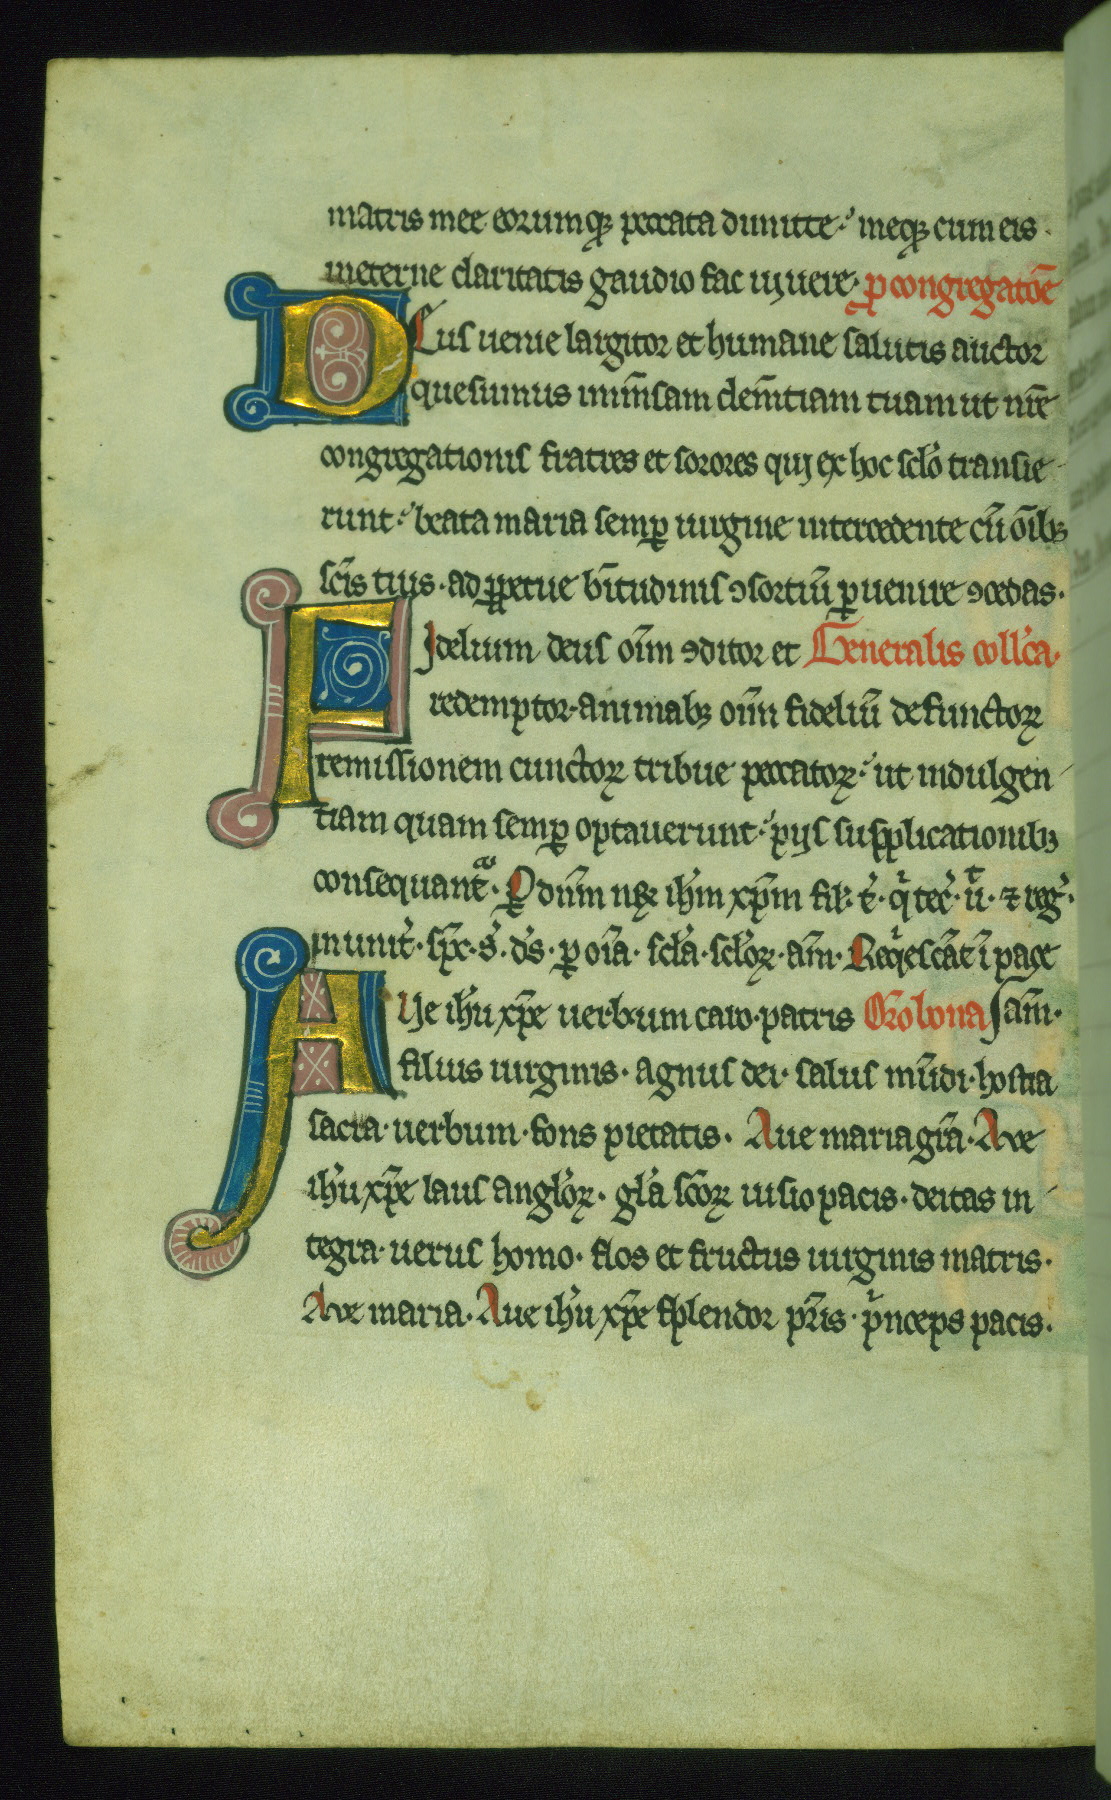 matris mee eorumqꝫ peccata dimitte. meqꝫ cum eis.
in eterne claritatis gaudio fac uiuere. ꝓ congregatōe
DEus uenie largitor et humane salutis auctor
quesumus inm̄sam clem̄tiam tuam ut nr̄e
congregationis fratres et sorores qui ex hoc sclo̕ transie
runt. beata maria semꝑ uirgine intercedente cū oīibꝫ
scīs tuis. ad ꝑpetue bt̄itudinis ꝯsortiū ꝑuenire ꝯcedas.
FIdelium deus oīm ꝯditor et Generalis coll̕ca.
redemptor. animabꝫ oīm fideliū defunctoꝝ
remissionem cunctoꝝ tribue peccatoꝝ. ut indulgen
tiam quam semꝑ optauerunt. pijs supplicationibꝫ
consequant᷑. P dn̄m nr̄m ih̄m xp̄m fil. t̕. q̕ tec̕. u̕. ⁊ reg̕.
in unit̕. sp̄c. s̕. ds̕. ꝑ oīa. scl̕a. scl̕oꝝ. am̄. Req̕escāt ī pace
AUe ih̄u xp̄e uerbum caro. patris Or̄o bona am̄.
filius uirginis. agnus dei. salus mūdi. hostia
sacra. uerbum. fons pietatis. Aue maria gr̄a. Ave
ih̄u xp̄e laus angl̕oꝝ. gl̕a sc̄oꝝ uisio pacis. deitas in
tegra. uerus homo. flos et fructus uirginis matris.
Ave maria. Aue ih̄u xp̄e splendor pr̄is. p̕nceps pacis.